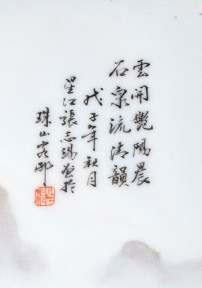 雲開艷陽晨
石泉流清韻
戊子年秋月
星江張志鴻畫於
珠山客邸